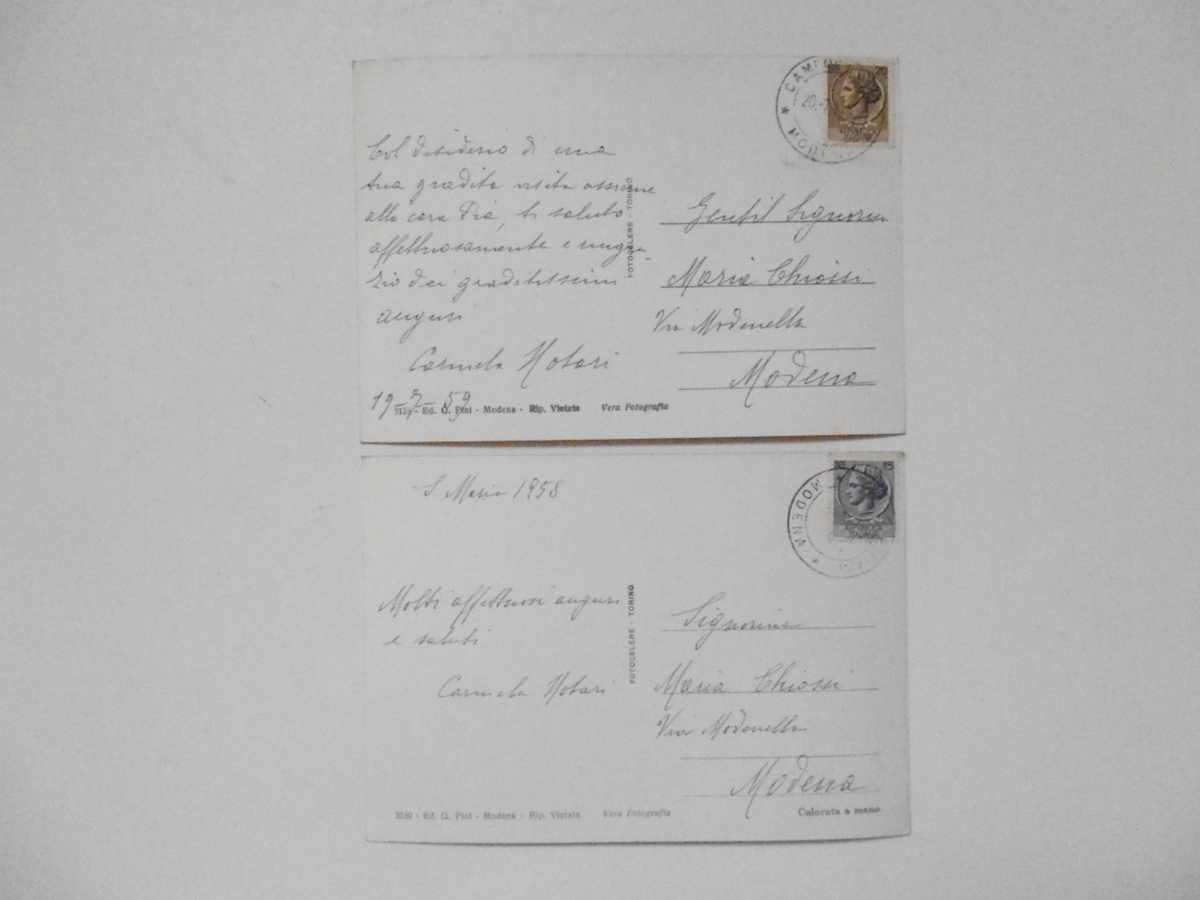 Col desiderio di una
tua gradita visita assieme
alla cara Pia, ti saluto
affettuosamente e ringra-
zio dei graditissimi
auguri
Carmela Notari
19-7-59
Gentil Signorina
Maria Chiossi
Via Modonella
Modena
FOTOCELERE - TORINO
Ed. G. Pini - Modena - Rip. Vietata Vera Fotografia
20.
MODENA
S. Maria 1958
Molti affettuosi auguri
e saluti
Carmela Notari
Signorina
Maria Chiossi
Via Modonella
Modena
FOTOCELERE - TORINO
Ed. G. Pini - Modena - Rip. Vietata Vera Fotografia
Colorata a mano
MODENA
15